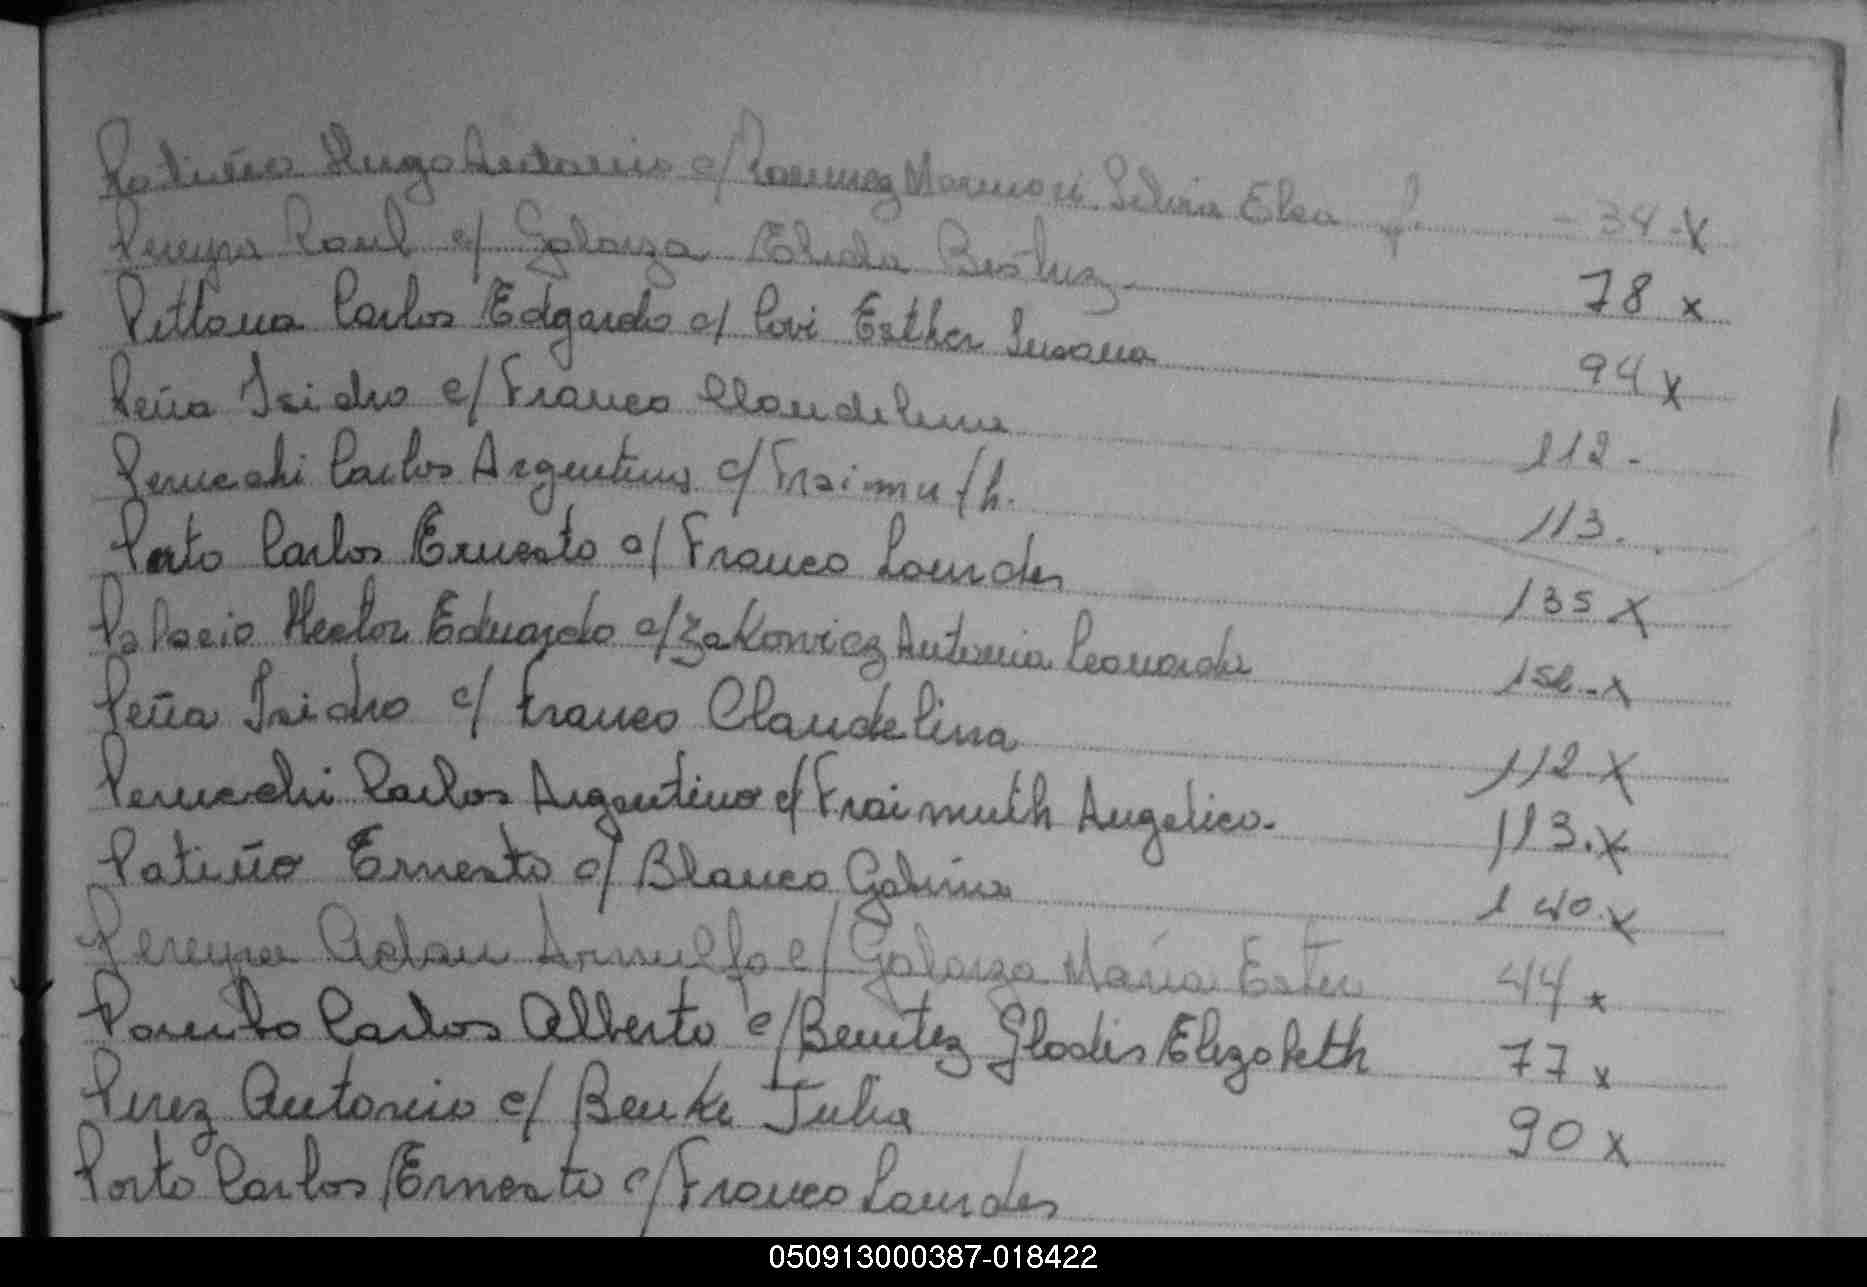 Patiño Hugo Antonio c/ Ramirez Silvia Elsa - 34 - X
Pereyra Raul c/ Galarza Elida Beatriz 78 x
Pettoua Carlos Edgardo c/ Povi Esther Susana 94 x
Peña Isidro c/ Franco Claudelina 112 -
Perucchi Carlos Argentino c/ Fraimuth. 113.
Porto Carlos Ernesto c/ Franco Lourdes 135 X
Palacio Hector Eduardo c/ Zakowicz Antonia Leonarda 152 - X
Peña Isidro c/ Franco Claudelina 112 X
Perucchi Carlos Argentino c/ Fraimuth Angelica. 113. X
Patiño Ernesto c/ Blanco Gabina 140. X
Pereyra Adan Arnulfo c/ Galarza María Ester 44 x
Carlos Alberto c/ Benitez Gladis Elizabeth 77 x
Perez Antonio c/ Benke Julia 90 x
Porto Carlos Ernesto c/ Franco Lourdes
050913000387-018422